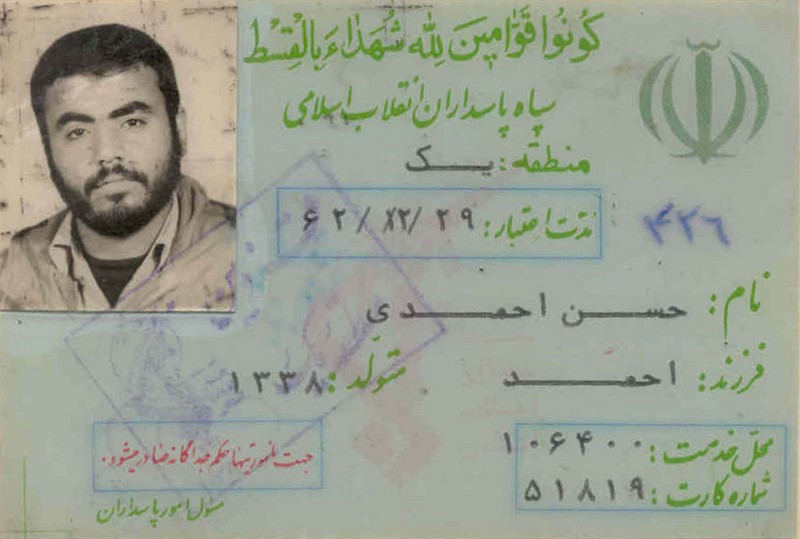 كُونُوا قَوّامينَ لِلّهِ شُهَداءَ بِالْقِسْط
سپاه پاسداران انقلاب اسلامی
منطقه: یک
مدّت اعتبار: ۶۲/۱۲/۲۹
۴۲۶
نام: حسن احمدی
فرزند: احمد
متولد: ۱۳۳۸
محل خدمت: ۱۰۶۴۰۰
شماره کارت: ۵۱۸۱۹
جهت مأموریتها حکم جداگانه صادر میشود.
مسئول امور پاسداران